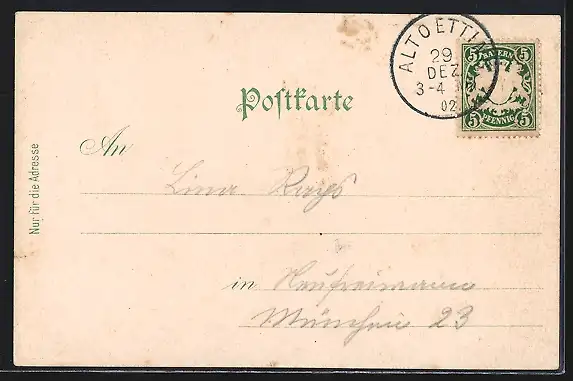 ALTOETTIN
29
DEZ
3-4
02
5 BAYERN 5
5 PFENNIG 5
Postkarte
An
Lina Rays
in Neufreimann
München 23
Nur für die Adresse